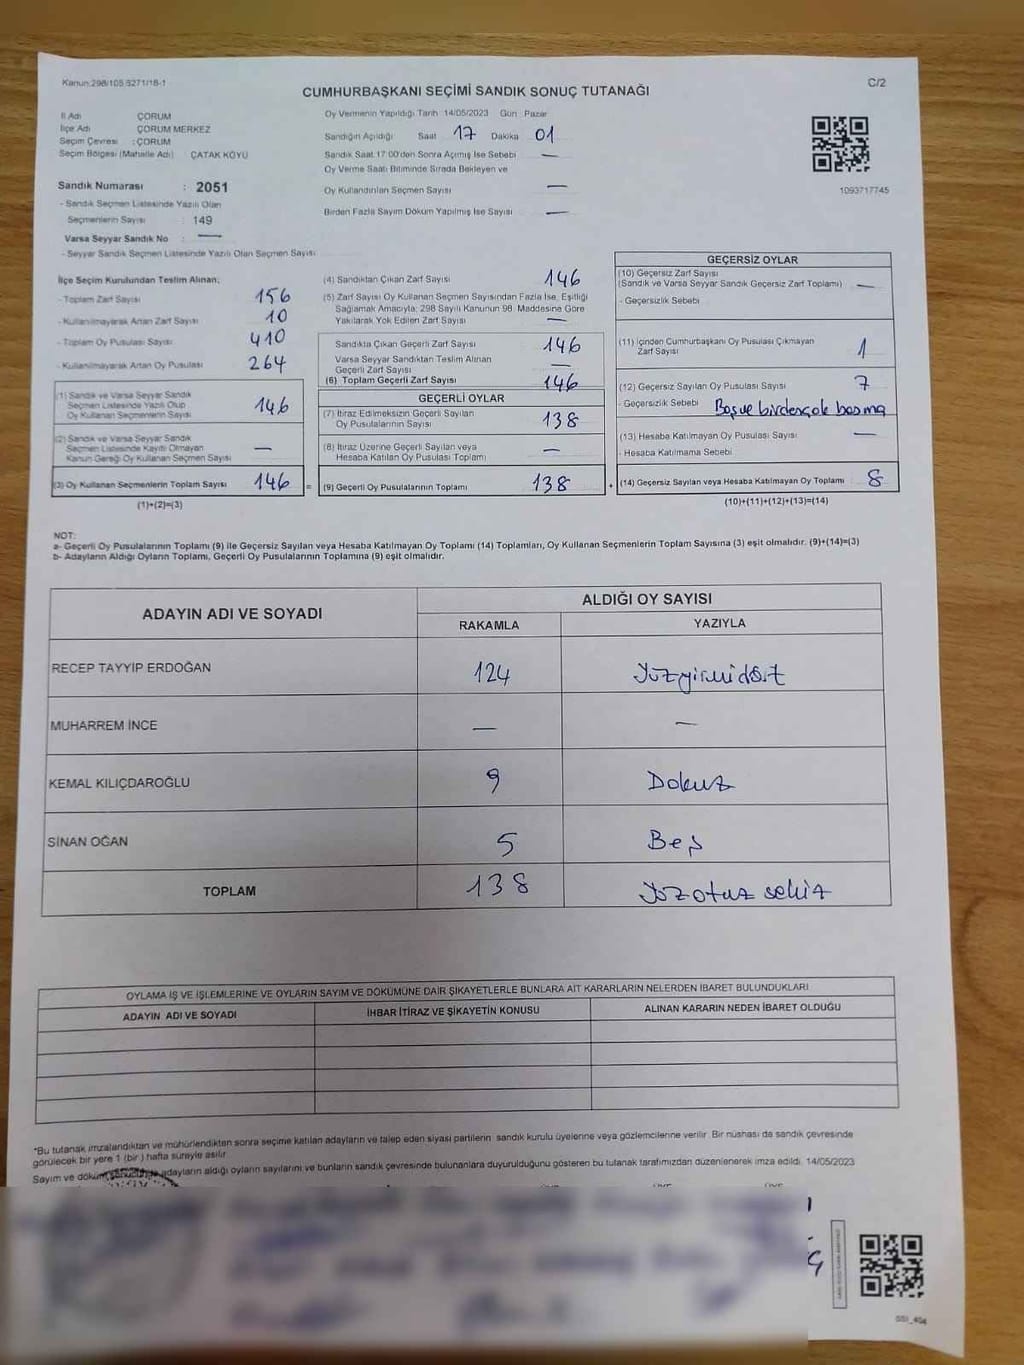 Kanun:298/105 6271/18-1
C/2
CUMHURBAŞKANI SEÇİMİ SANDIK SONUÇ TUTANAĞI
İl Adı ÇORUM
İlçe Adı ÇORUM MERKEZ
Seçim Çevresi : ÇORUM
Seçim Bölgesi (Mahalle Adı) ÇATAK KÖYÜ
Sandık Numarası : 2051
- Sandık Seçmen Listesinde Yazılı Olan
Seçmenlerin Sayısı : 149
Varsa Seyyar Sandık No : —
- Seyyar Sandık Seçmen Listesinde Yazılı Olan Seçmen Sayısı
Oy Vermenin Yapıldığı Tarih 14/05/2023 Gün Pazar
Sandığın Açıldığı Saat 17 Dakika 01
Sandık Saat 17:00'den Sonra Açılmış İse Sebebi —
Oy Verme Saati Bitiminde Sırada Bekleyen ve
Oy Kullandırılan Seçmen Sayısı —
Birden Fazla Sayım Döküm Yapılmış İse Sayısı —
1093717745
İlçe Seçim Kurulundan Teslim Alınan;
- Toplam Zarf Sayısı 156
- Kullanılmayarak Artan Zarf Sayısı 10
- Toplam Oy Pusulası Sayısı 410
- Kullanılmayarak Artan Oy Pusulası 264
(1) Sandık ve Varsa Seyyar Sandık
Seçmen Listesinde Yazılı Olup
Oy Kullanan Seçmenlerin Sayısı 146
(2) Sandık ve Varsa Seyyar Sandık
Seçmen Listesinde Kayıtlı Olmayan
Kanun Gereği Oy Kullanan Seçmen Sayısı —
(3) Oy Kullanan Seçmenlerin Toplam Sayısı 146 =
(1)+(2)=(3)
(4) Sandıktan Çıkan Zarf Sayısı 146
(5) Zarf Sayısı Oy Kullanan Seçmen Sayısından Fazla İse, Eşitliği
Sağlamak Amacıyla; 298 Sayılı Kanunun 98. Maddesine Göre
Yakılarak Yok Edilen Zarf Sayısı —
Sandıkta Çıkan Geçerli Zarf Sayısı 146
Varsa Seyyar Sandıktan Teslim Alınan
Geçerli Zarf Sayısı —
(6) Toplam Geçerli Zarf Sayısı 146
GEÇERLİ OYLAR
(7) İtiraz Edilmeksizin Geçerli Sayılan
Oy Pusulalarının Sayısı 138
(8) İtiraz Üzerine Geçerli Sayılan veya
Hesaba Katılan Oy Pusulası Toplamı —
(9) Geçerli Oy Pusulalarının Toplamı 138 +
GEÇERSİZ OYLAR
(10) Geçersiz Zarf Sayısı
(Sandık ve Varsa Seyyar Sandık Geçersiz Zarf Toplamı) —
- Geçersizlik Sebebi
(11) İçinden Cumhurbaşkanı Oy Pusulası Çıkmayan
Zarf Sayısı 1
(12) Geçersiz Sayılan Oy Pusulası Sayısı 7
- Geçersizlik Sebebi Boş ve birden çok basma
(13) Hesaba Katılmayan Oy Pusulası Sayısı —
- Hesaba Katılmama Sebebi
(14) Geçersiz Sayılan veya Hesaba Katılmayan Oy Toplamı 8
(10)+(11)+(12)+(13)=(14)
NOT:
a- Geçerli Oy Pusulalarının Toplamı (9) ile Geçersiz Sayılan veya Hesaba Katılmayan Oy Toplamı (14) Toplamları, Oy Kullanan Seçmenlerin Toplam Sayısına (3) eşit olmalıdır. (9)+(14)=(3)
b- Adayların Aldığı Oyların Toplamı, Geçerli Oy Pusulalarının Toplamına (9) eşit olmalıdır.
ADAYIN ADI VE SOYADI
ALDIĞI OY SAYISI
RAKAMLA YAZIYLA
RECEP TAYYİP ERDOĞAN 124 Yüzyirmidört
MUHARREM İNCE — —
KEMAL KILIÇDAROĞLU 9 Dokuz
SİNAN OĞAN 5 Beş
TOPLAM 138 Yüzotuz sekiz
OYLAMA İŞ VE İŞLEMLERİNE VE OYLARIN SAYIM VE DÖKÜMÜNE DAİR ŞİKAYETLERLE BUNLARA AİT KARARLARIN NELERDEN İBARET BULUNDUKLARI
ADAYIN ADI VE SOYADI İHBAR İTİRAZ VE ŞİKAYETİN KONUSU ALINAN KARARIN NEDEN İBARET OLDUĞU
*Bu tutanak imzalandıktan ve mühürlendikten sonra seçime katılan adayların ve talep eden siyasi partilerin sandık kurulu üyelerine veya gözlemcilerine verilir. Bir nüshası da sandık çevresinde
görülecek bir yere 1 (bir) hafta süreyle asılır.
Sayım ve döküm sonucunda adayların aldığı oyların sayılarını ve bunların sandık çevresinde bulunanlara duyurulduğunu gösteren bu tutanak tarafımızdan düzenlenerek imza edildi. 14/05/2023